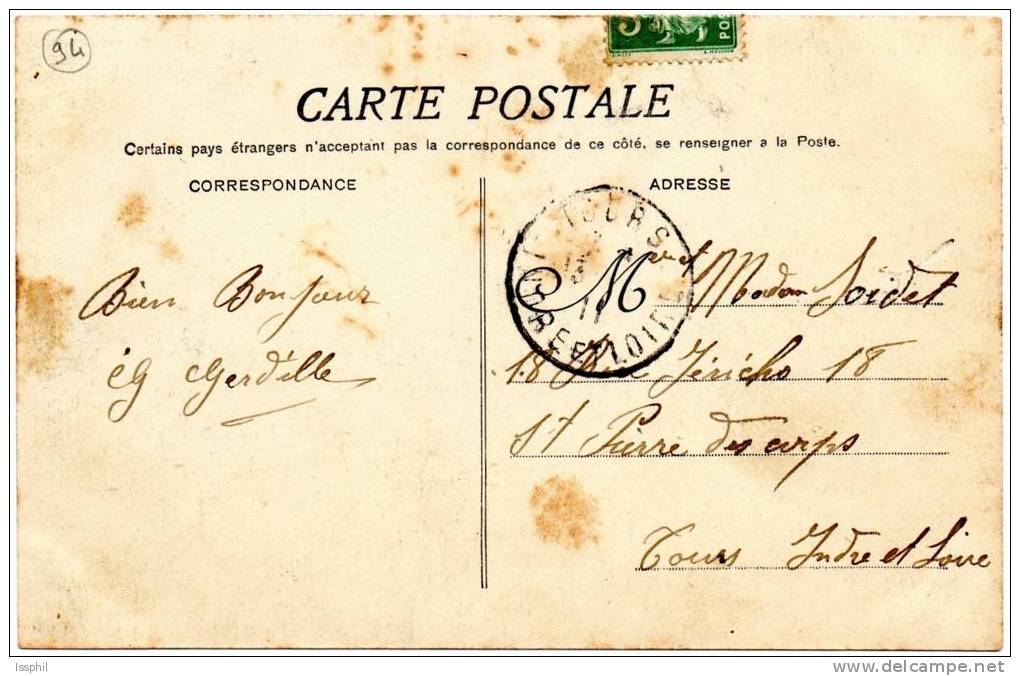 94
5
POS
CARTE POSTALE
Certains pays étrangers n'acceptant pas la correspondance de ce côté, se renseigner a la Poste.
CORRESPONDANCE
ADRESSE
TOURS
11
INDRE ET LOIRE
Bien Bonjour
M et Madam Soidet
18 Rue Jéricho 18
St Pierre des corps
Tours Indre et Loire
Issphil
www.delcampe.net